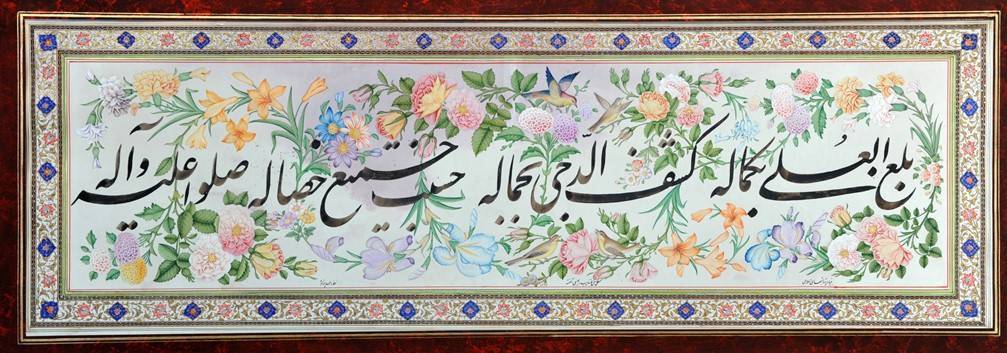 بلغ العلی بکماله کشف الدجی بجماله حسنت جمیع خصاله صلوا علیه و آله